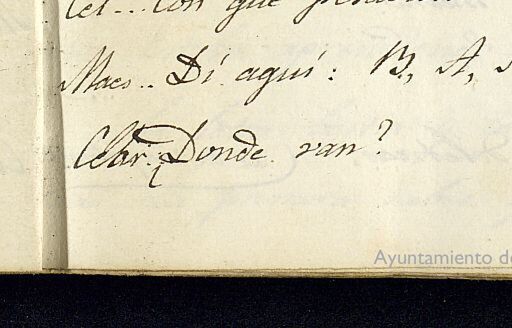 Cel... Con que
Maes.. Di aqui: B, A,
Clar. ¿Donde van?
Ayuntamiento de